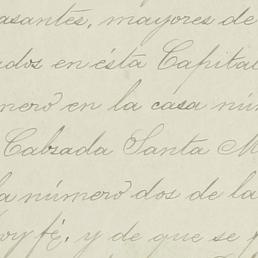 asantes, mayores de
ados en ésta Capital
mero en la casa núm
Calzada Santa M
a número dos de la
doy fé, y de que se